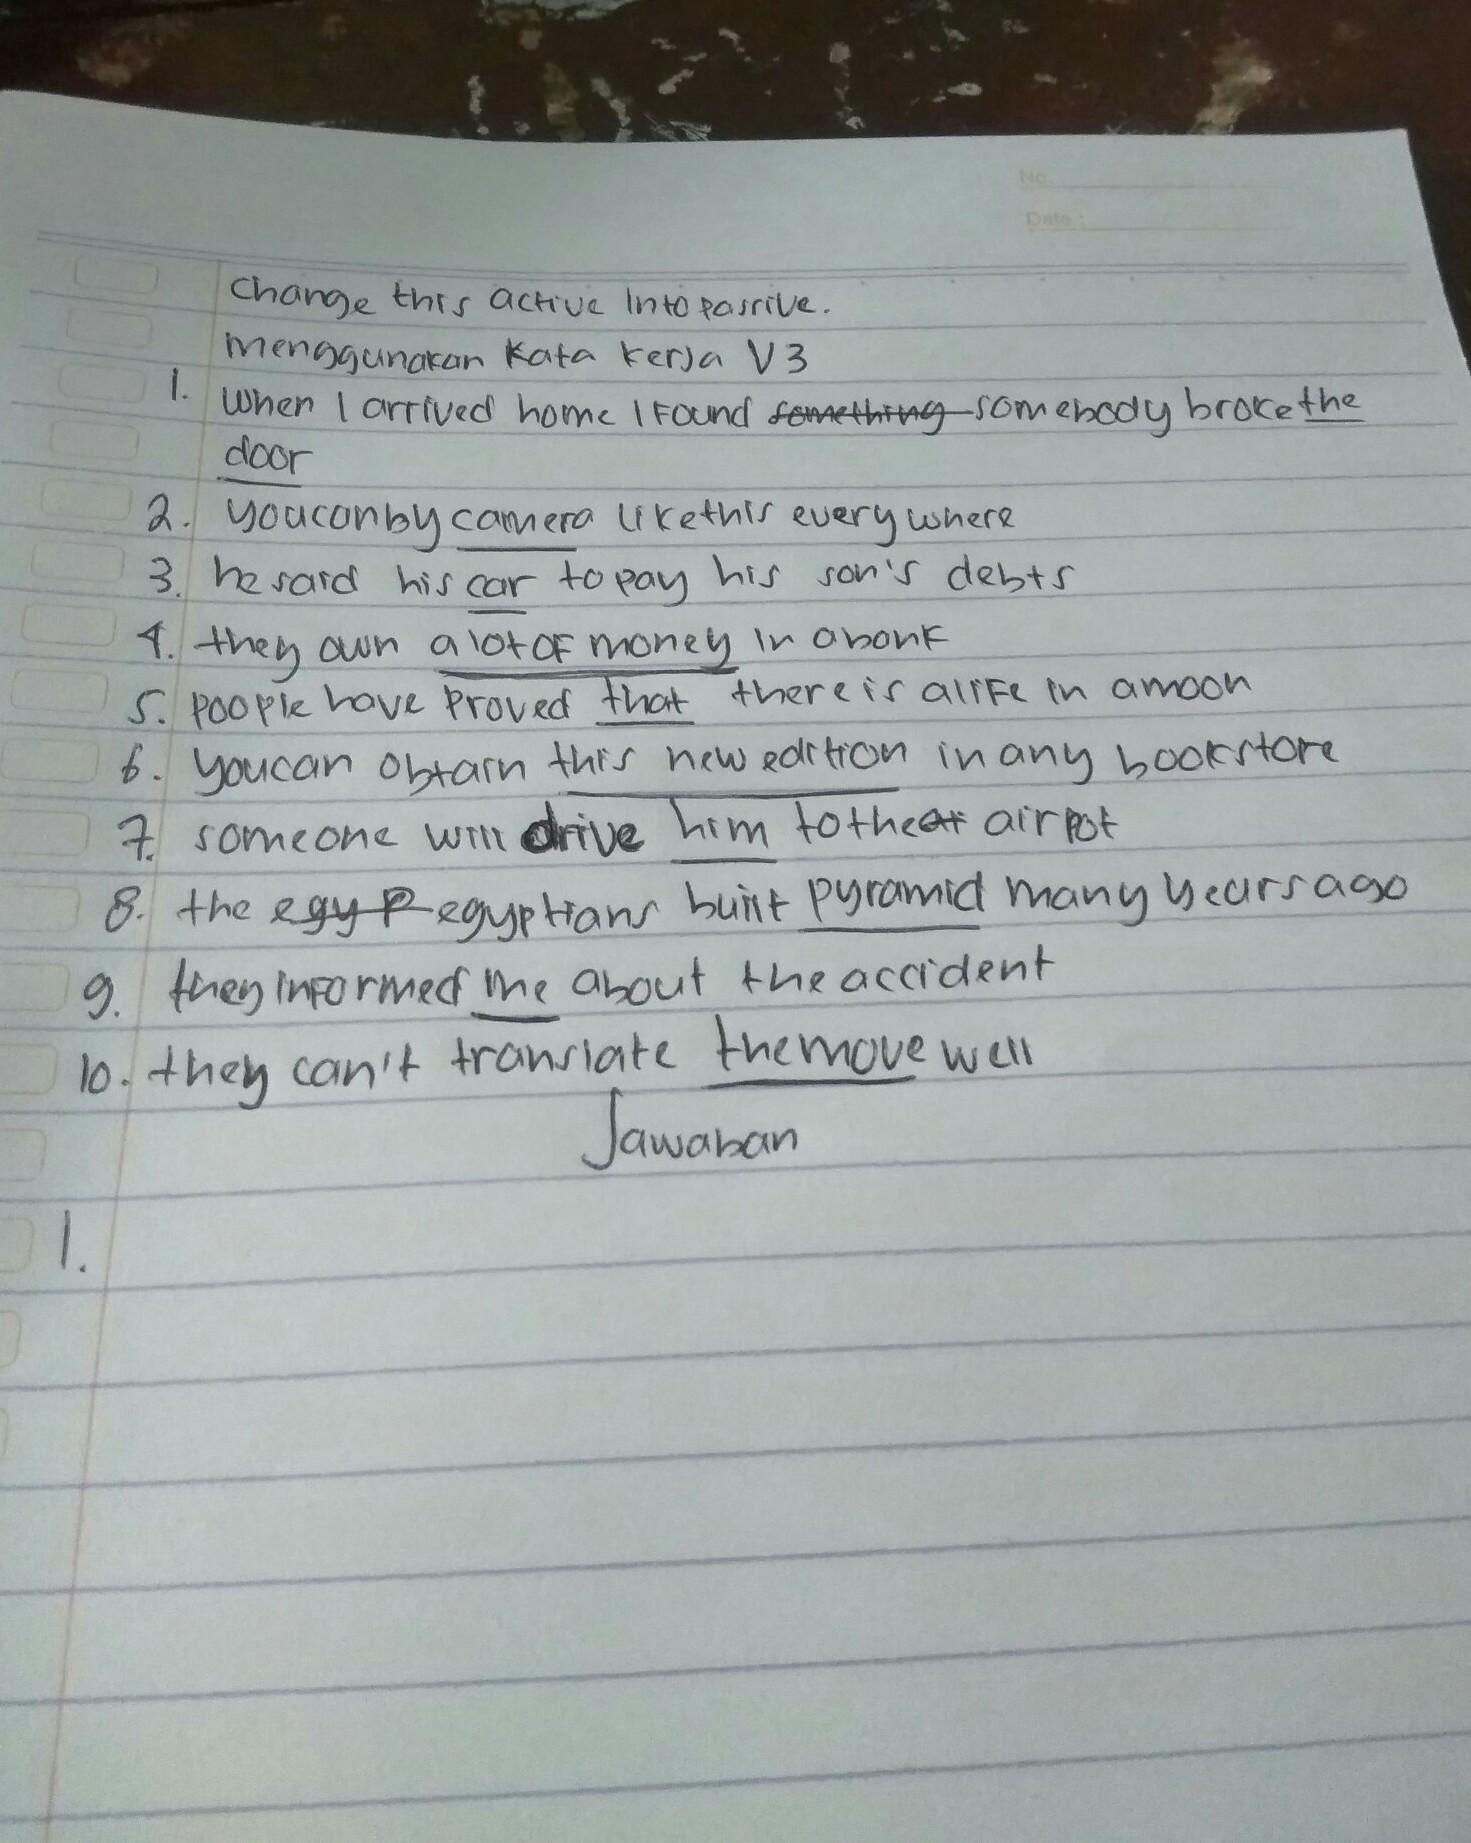 No.
Date :
Change this active Into passive.
menggunakan kata kerja V3
1. When I arrived home I found something somebody broke the
door
2. you can by camera like this every where
3. he said his car to pay his son's debts
4. they own a lot of money in a bank
5. poople have proved that there is a life in a moon
6. you can obtain this new edition in any bookstore
7. someone will drive him to the air pot
8. the egy P egyptians built pyramid many years ago
9. they informed me about the accident
10. they can't translate the move well
Jawaban
1.